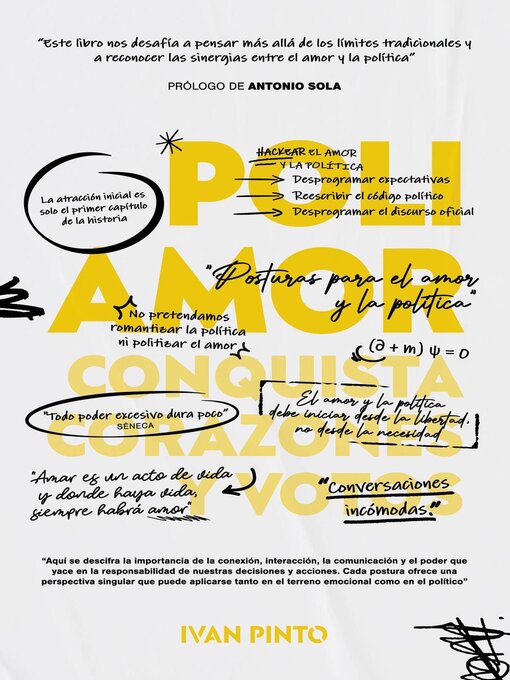 “Este libro nos desafía a pensar más allá de los límites tradicionales y
a reconocer las sinergias entre el amor y la política”
PRÓLOGO DE ANTONIO SOLA
POLI
AMOR
CONQUISTA
CORAZONES
Y VOTOS
HACKEAR EL AMOR
Y LA POLÍTICA
Desprogramar expectativas
Reescribir el código político
Desprogramar el discurso oficial
La atracción inicial es
solo el primer capítulo
de la historia
“Posturas para el amor
y la política”
No pretendamos
romantizar la política
ni politizar el amor
(∂ + m) ψ = 0
El amor y la política
debe iniciar desde la libertad,
no desde la necesidad
“Todo poder excesivo dura poco”
SÉNECA
“Amar es un acto de vida
y donde haya vida,
siempre habrá amor”
“Conversaciones
incómodas.”
“Aquí se descifra la importancia de la conexión, interacción, la comunicación y el poder que
yace en la responsabilidad de nuestras decisiones y acciones. Cada postura ofrece una
perspectiva singular que puede aplicarse tanto en el terreno emocional como en el político”
IVAN PINTO